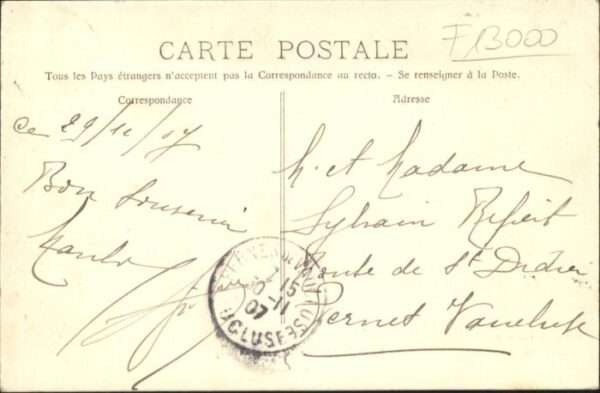 CARTE POSTALE
Tous les Pays étrangers n'acceptent pas la Correspondance au recto. - Se renseigner à la Poste.
Correspondance
Adresse
F 13000
Ce 29/11/07
Bon Souvenir
M. et Madame
Sylvain
Route de St Didier
Pernes Vaucluse
VAUCLUSE
15
07